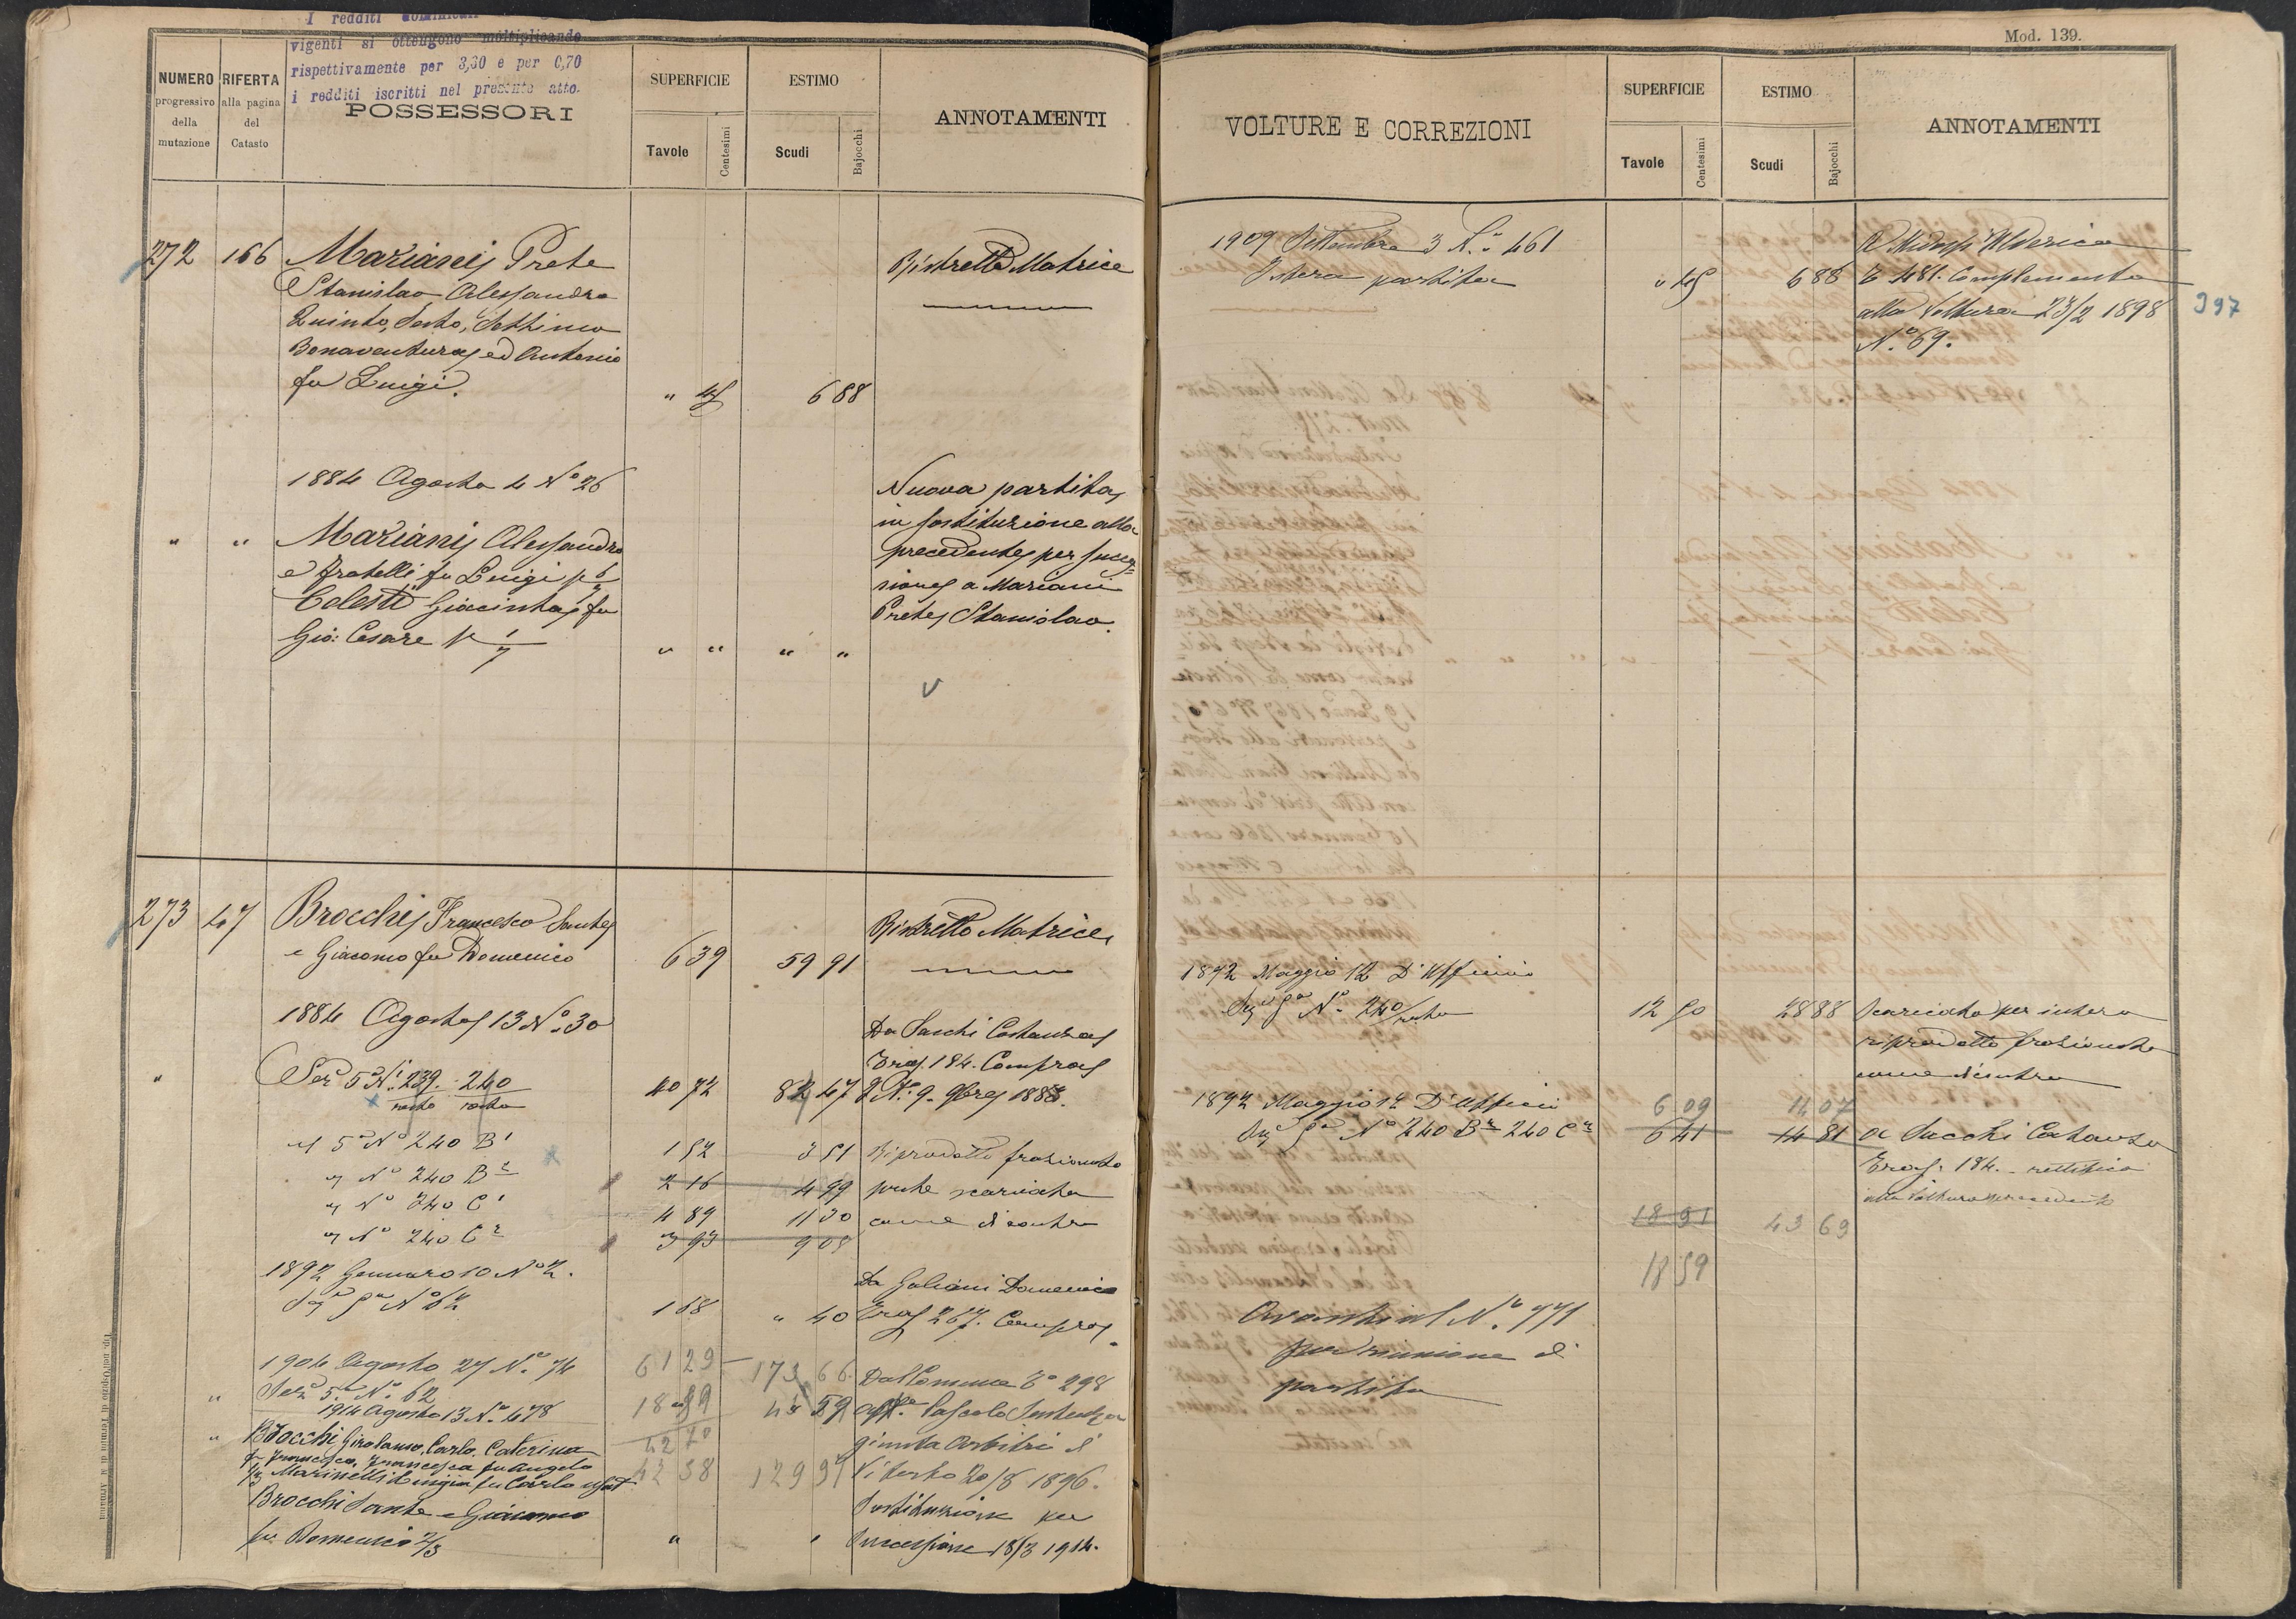 I redditi dominicali
vigenti si ottengono moltiplicando
rispettivamente per 3,30 e per 0,70
i redditi iscritti nel presente atto.
NUMERO progressivo della mutazione
RIFERTA alla pagina del Catasto
POSSESSORI
SUPERFICIE
Tavole
Centesimi
ESTIMO
Scudi
Bajocchi
ANNOTAMENTI
272 166 Mariani Prete
Ristretto Matrice
Stanislao Alessandro
Quinto, Sesto, Settimo
Bonaventura ed Antonio
fu Luigi.
" 45 6 88
1884 Agosto 4 N° 26
Nuova partita,
in sostituzione alla
" " Mariani Alessandro
precedente per succes=
e fratelli fu Luigi p 6/7
sione a Mariani
Celesti Giacinta fu
Prete Stanislao.
Gio: Cesare p 1/7
" " " "
V
273 47 Brocchi Francesco Sante
Ristretto Matrice
e Giacomo fu Domenico
6 39 59 91
1884 Agosto 13 N° 30
Da Sacchi Costanza
E 184. Compra
" Sez 5a N. 239 240
40 72 82 47 N. 9. 9bre 1883.
rata rata
" 5a N° 240 B1
1 52 3 51 Riprodotto frazionato
" N° 240 B2
2 16 4 99 parte scaricata
" N° 240 C1
4 89 11 30 come di contro
" N° 240 C2
3 93 9 08
1892 Gennaro 10 N° 2.
Da Galiani Domenico
1 58 " 40 267. Compra
1904 Agosto 27 N. 74
61 29 173 66 Dal Comune E° 298
" Sez 5a N. 62
18 59 43 59
1914 Agosto 13 N. 478
" Brocchi Girolamo, Carlo, Caterina
42 70
giunta Arbitri di
fu Francesco, Francesca fu Angelo
1/3 Marinelli Luigia fu Carlo usuf.
42 38 129 97 Viterbo 20/8 1896.
Brocchi Sante e Giacomo
Sostituzione per
fu Domenico 2/3
" " Successione 18/3 1914.
Mod. 139.
VOLTURE E CORREZIONI
SUPERFICIE
Tavole
Centesimi
ESTIMO
Scudi
Bajocchi
ANNOTAMENTI
1909 Settembre 3 N. 461
Intera partita
" 45 6 88 E 481. Complemento
alla Voltura 23/2 1898
397
N. 69.
1892 Maggio 12 D'Ufficio
N. 240/rata
12 50 28 88 Scaricata per intera
riprodotta frazionata
come di contro
1892 Maggio 12 D'Ufficio
6 09 14 07
N° 240 B2 240 C2
6 41 14 81 a Sacchi Costanza
184. rettifica
alla Voltura precedente
18 91 43 69
18 59
Avanti al N. 771
per riunione di
partita